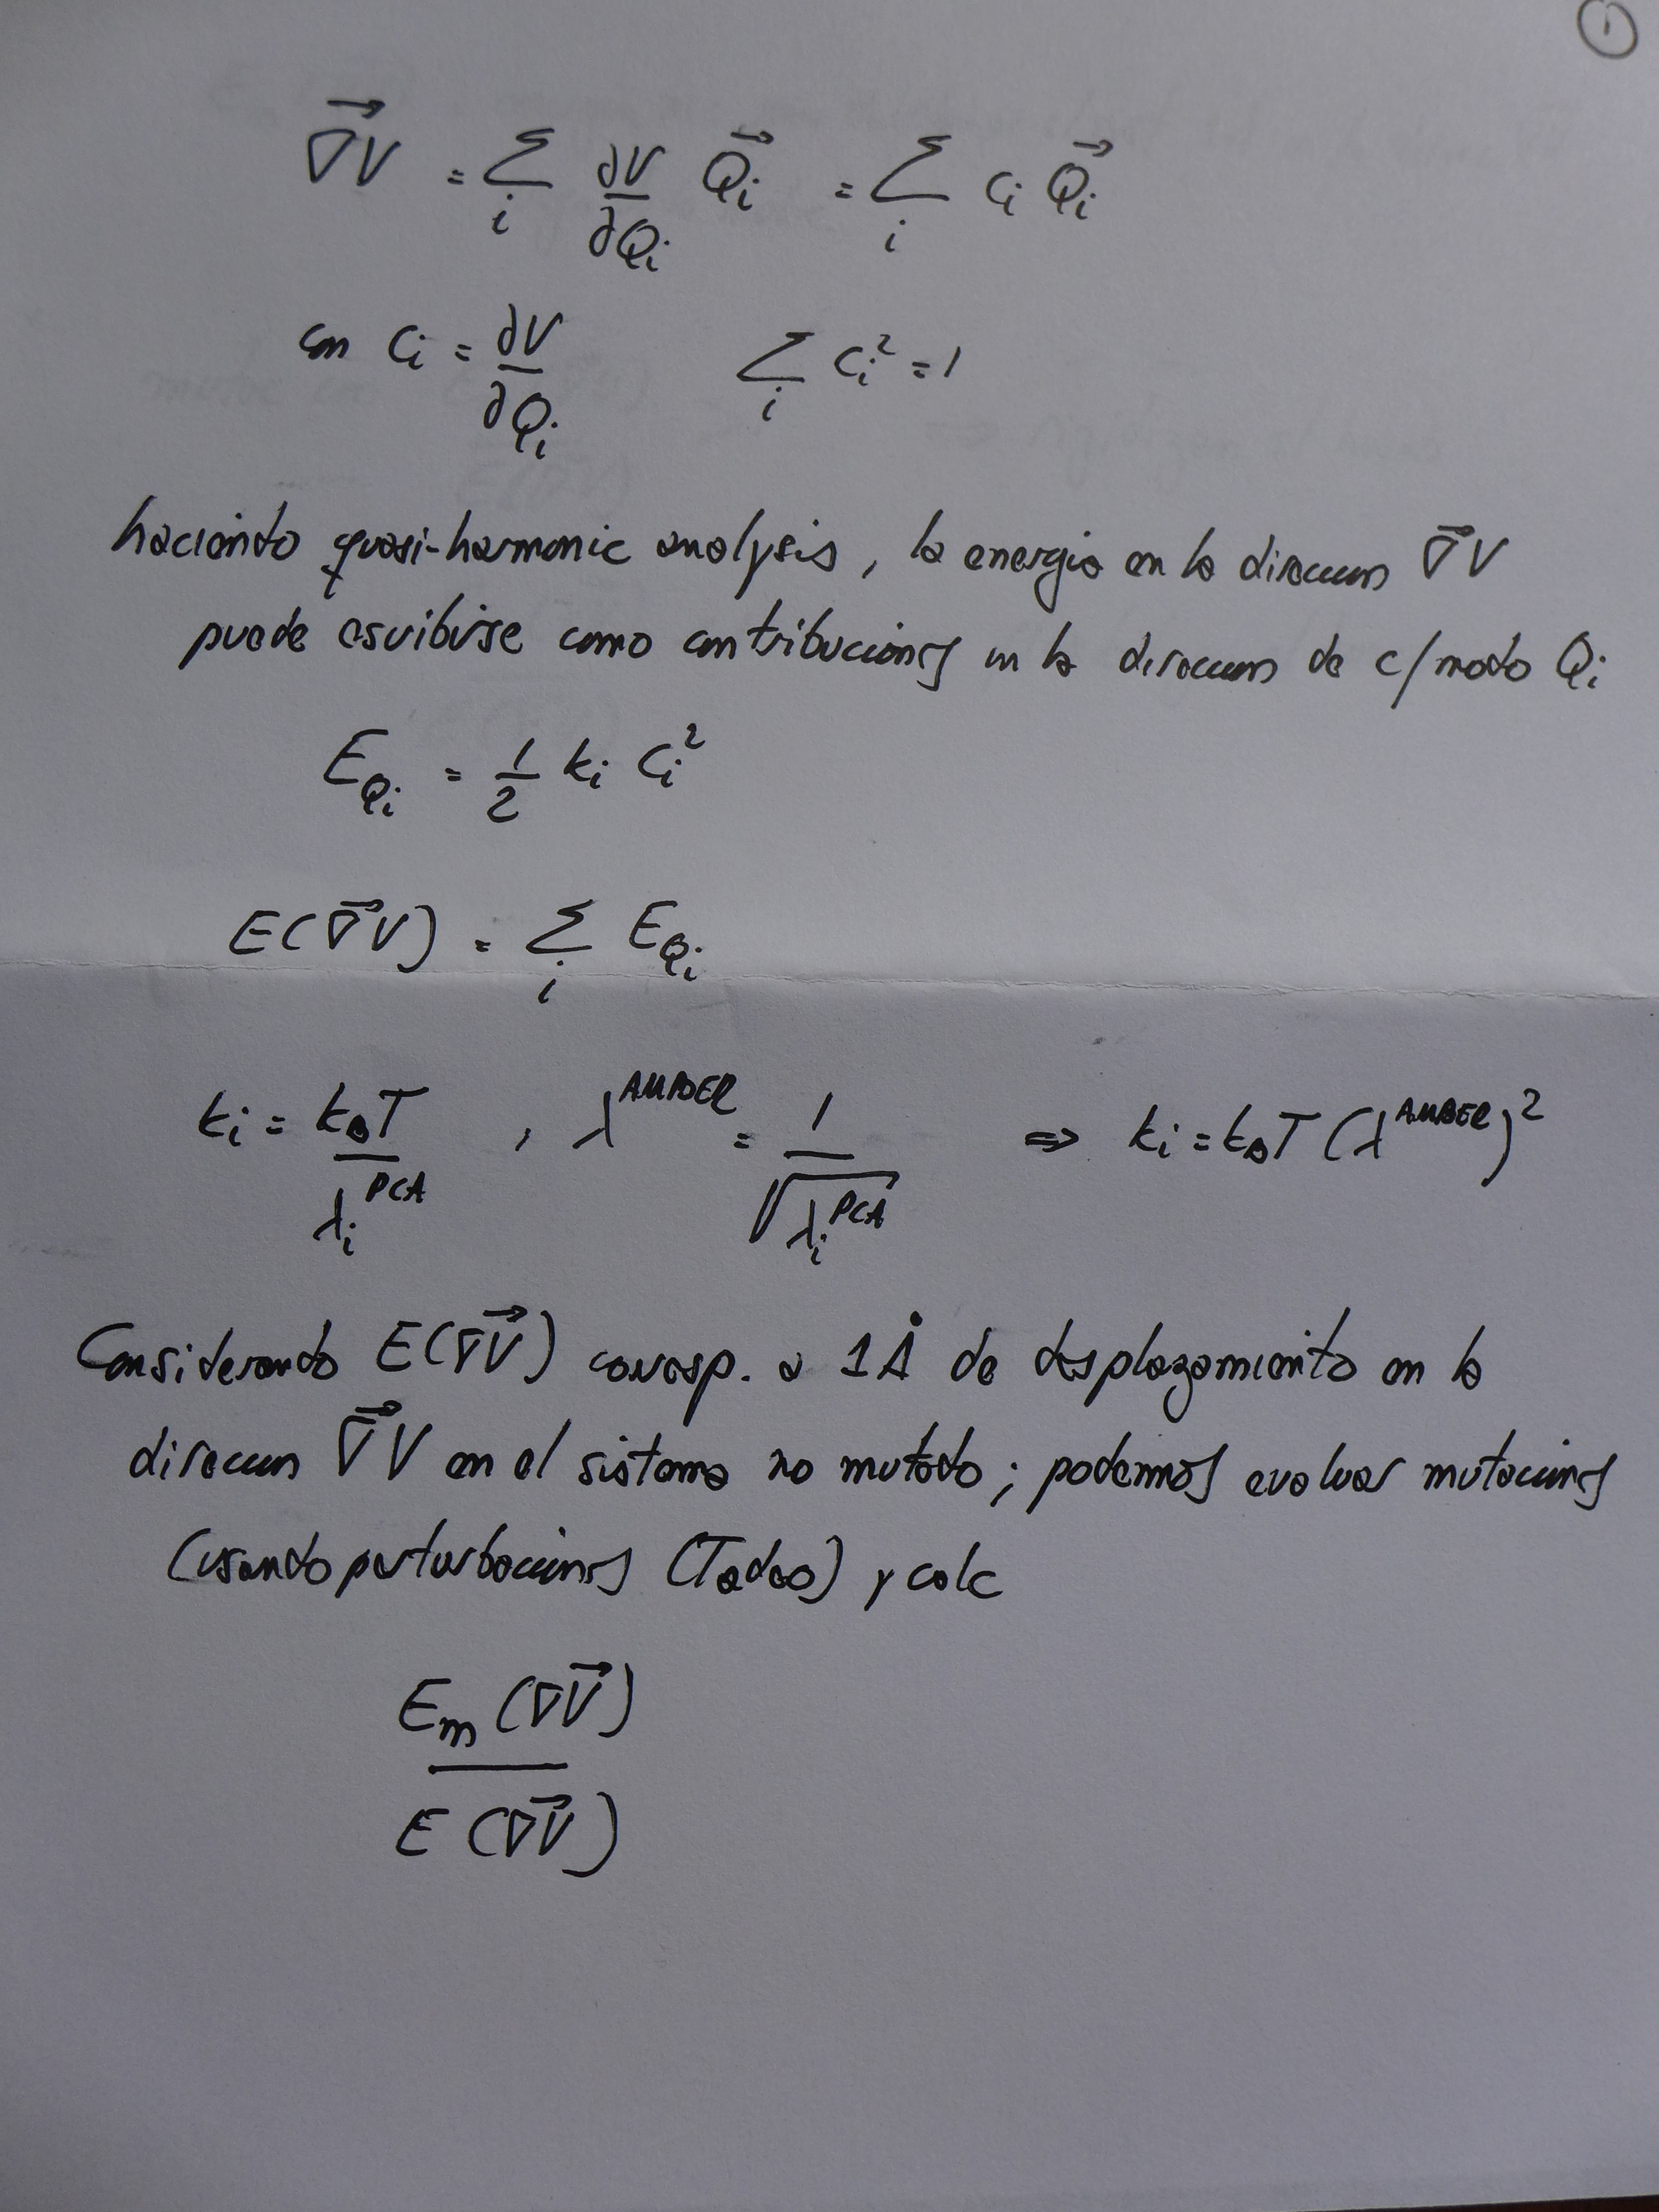 1
∇⃗V = Σ_i ∂V/∂Q_i Q⃗_i = Σ_i C_i Q⃗_i
con C_i = ∂V/∂Q_i Σ_i C_i² = 1
haciendo quasi-harmonic analysis, la energia en la direccion ∇⃗V
puede escribirse como contribuciones en la direccion de c/modo Q_i
E_{Q_i} = 1/2 k_i C_i²
E(∇⃗V) = Σ_i E_{Q_i}
k_i = k_B T / λ_i^{PCA} , λ^{AMBER} = 1/√(λ_i^{PCA}) ⇒ k_i = k_B T (λ^{AMBER})²
Considerando E(∇V⃗) corresp. a 1Å de desplazamiento en la
direccion ∇⃗V en el sistema no mutado; podemos evaluar mutaciones
(usando perturbaciones (Tadeo) y calc
E_m (∇V⃗)
/
E (∇V⃗)